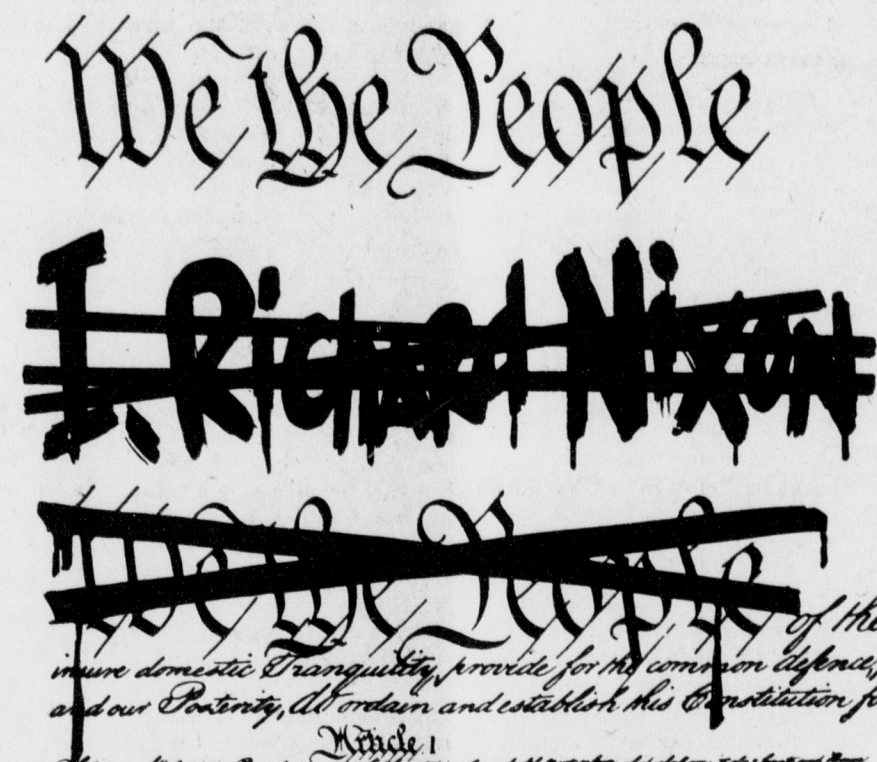 We the People
I, Richard Nixon
We the People of the
insure domestic Tranquility, provide for the common defence,
and our Posterity, do ordain and establish this Constitution fo
Article 1